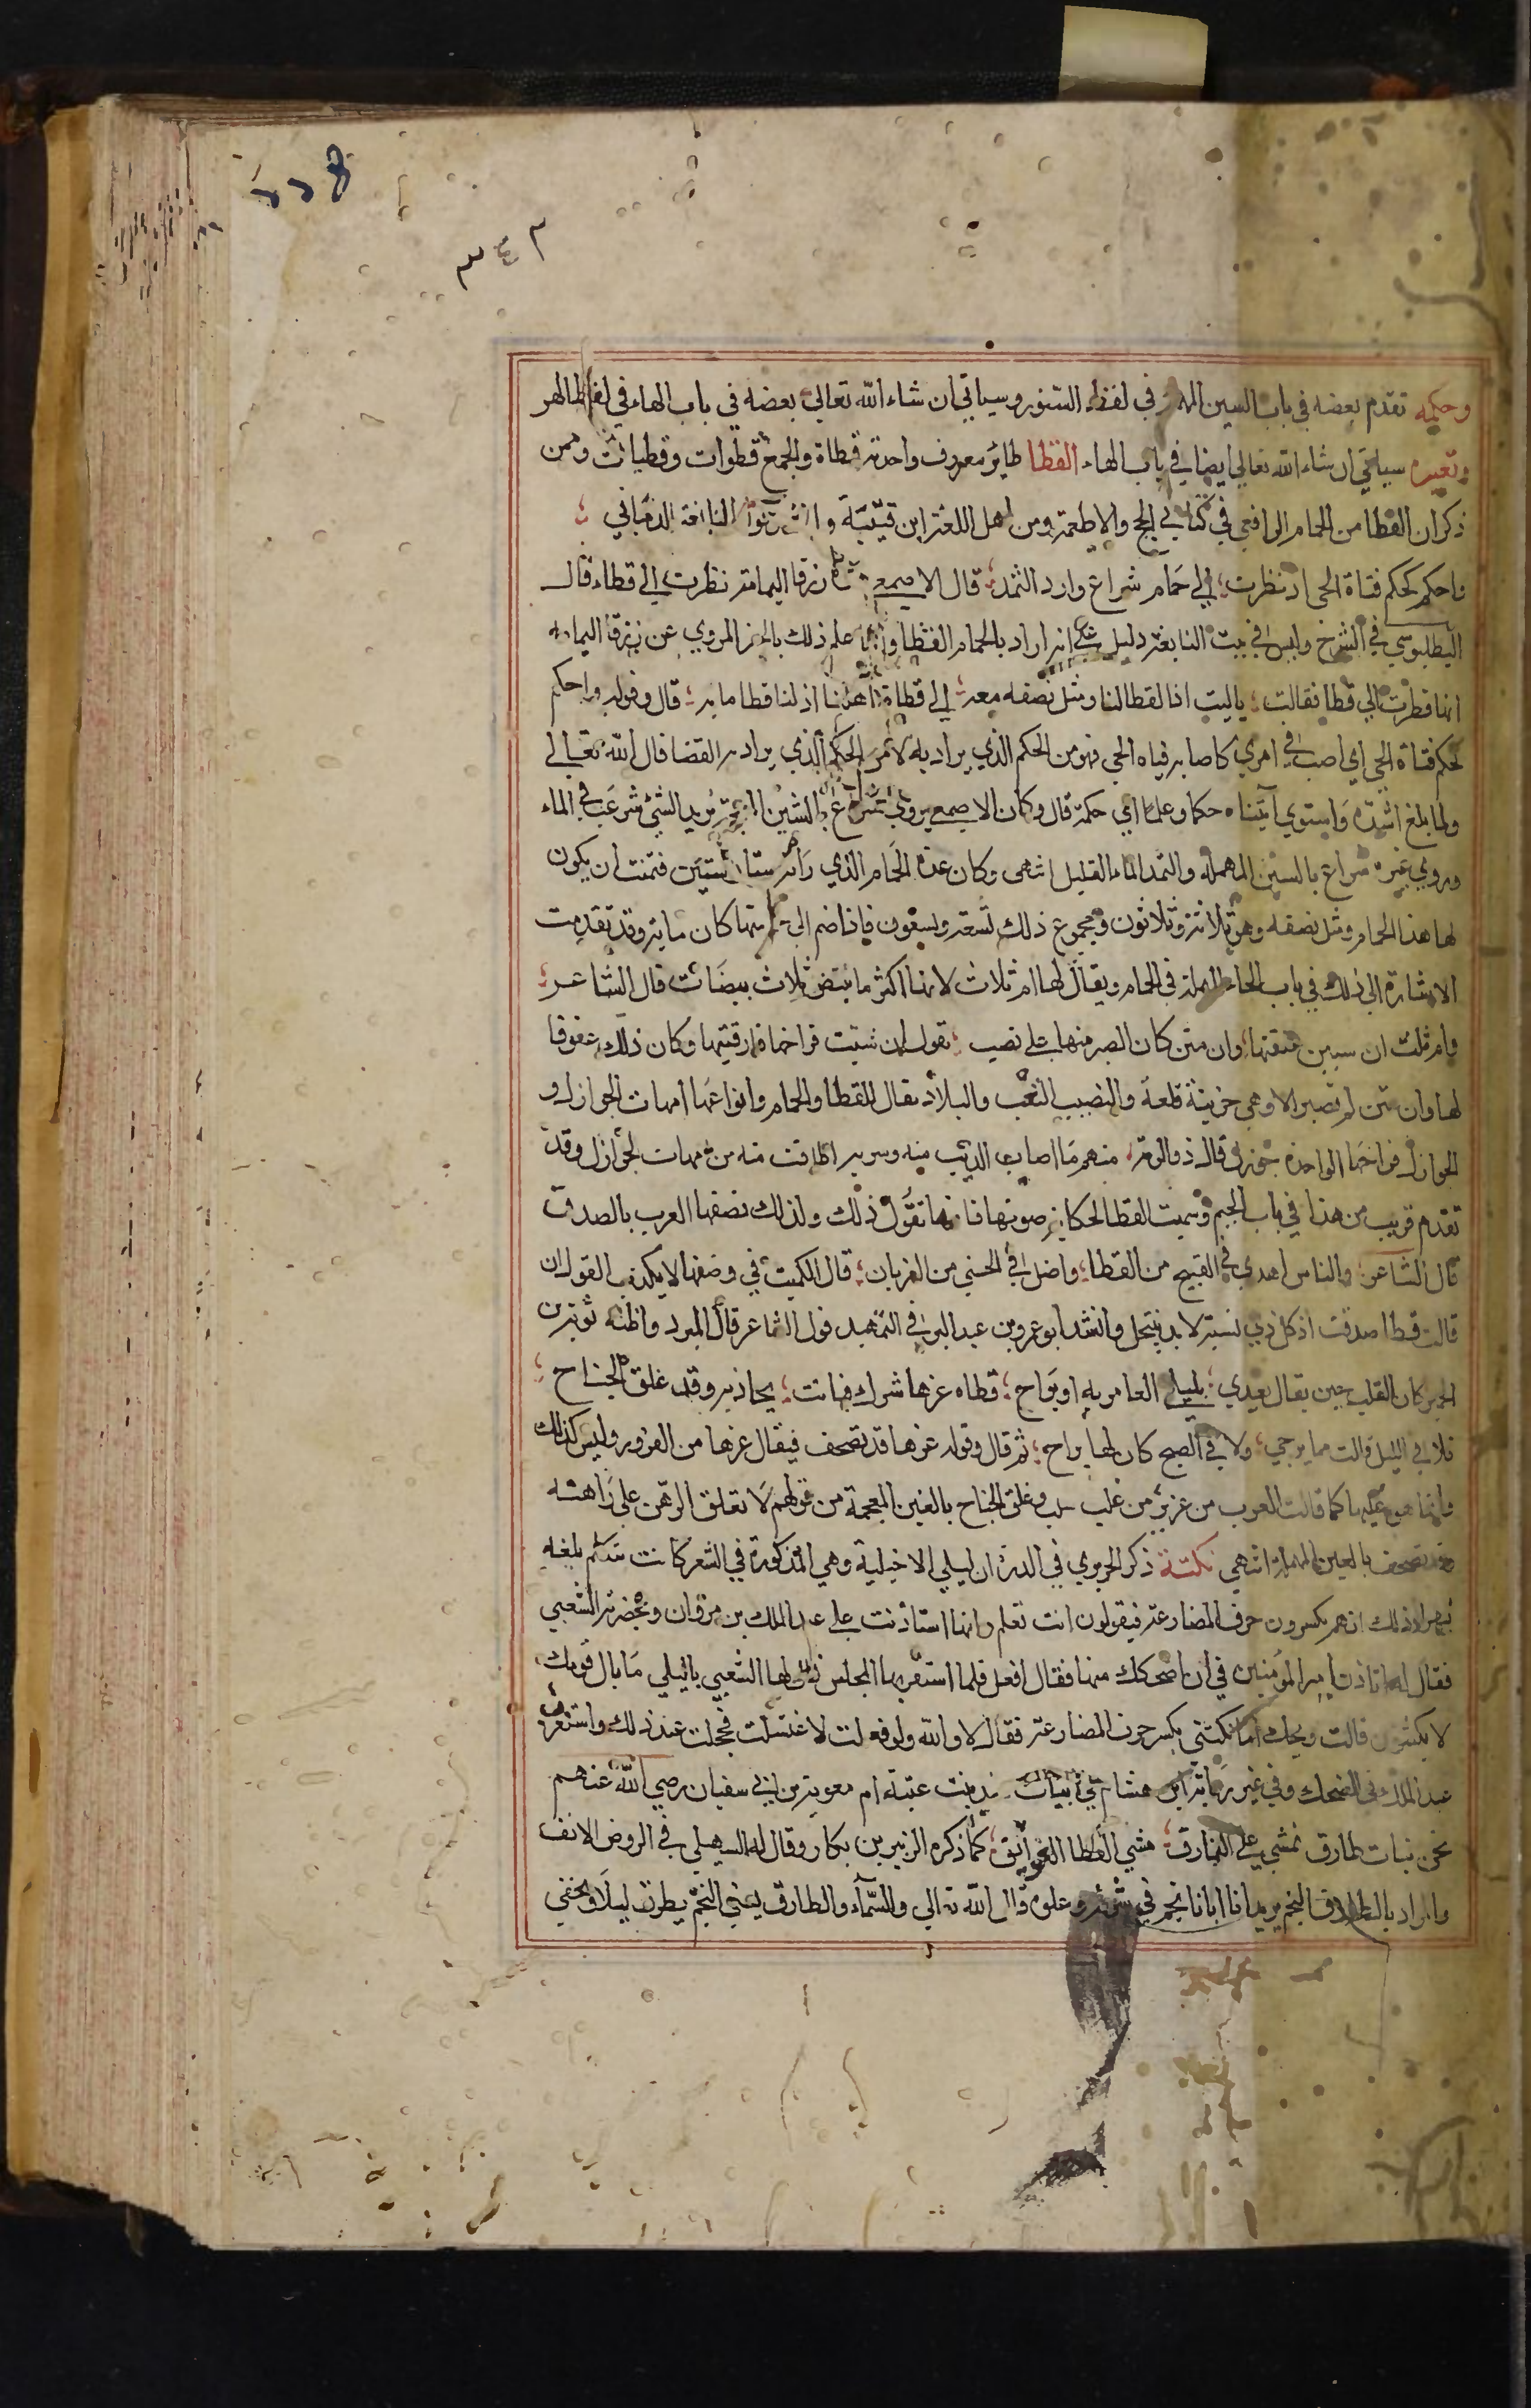 ٢٢٤
٣٤٣
وحكمه تقدم بعضه في باب السين المهملة في لفظ السنور وسياتي ان شاء الله تعالى بعضه في باب الهاء في لفظ الهر
وتعبيره سياتي ان شاء الله تعالى ايضا في باب الهاء القطا طاير معروف واحدته قطاة والجمع قطوات وقطيات وممن
ذكر ان القطا من الحمام الرافعي في كتابي الحج والاطعمة ومن اهل اللغة ابن قتيبة النابغة الذبياني
واحكم كحكم فتاة الحي اذ نظرت الي حمام شراع وارد الثمد قال الاصمعي زرقا اليمامة نظرت الي قطاء قال
البطليوسي في الشرح وليس في بيت النابغة دليل على انه اراد بالحمام القطا وانما علم ذلك بالخبر المروي عن زرقا اليمامه
انها نظرت الي قطا فقالت ياليت اذا لقطا لنا ومثل نصفه معه الي قطاة اهلنا اذ لنا قطا مايه قال وقوله واحكم
كحكم فتاة الحي اي اصب في امري كاصابه فتاه الحي فهو من الحكم الذي يراد به لا من الحكم الذي يراد به القضا قال الله تعالي
ولما بلغ اشده واستوي آتيناه حكما وعلما اي حكمة قال وكان الاصمعي يروي شراع بالشين المعجمة يريد الشي شرعت في الماء
وروي غيره سراع بالسين المهمله والثمد الماء القليل انتهى وكان عدة الحمام الذي رأته ستا وستين فتمنت ان يكون
لها هذا الحمام ومثل نصفه وهو ثلاثة وثلاثون ومجموع ذلك تسعة وتسعون فاذا ضم الي كان ماية وقد تقدمت
الاشارة الي ذلك في باب الحاء المهملة في الحمام ويقال لها ام ثلاث لانها اكثر ما تبيض ثلاث بيضات قال الشاعر
وام ثلث ان سببن عققتها وان متن كان الصبر منها علي نصب يقول ان شبت فراخها فارقتها وكان ذلك عقوقا
لها وان متن لم تصبر الا وهي حزينة قلعة والنصب التعب والبلاد يقال للقطا والحمام وانواعها امهات الجوازل و
الجوازل فراخها الواحدة جوزل قال ذو الرمة منهم ما اصاب الذيب منه وسربه اطافت منه من امهات الجوازل وقد
تقدم قريب من هذا في باب الجيم وسميت القطا لحكاية صوتها فانها تقول ذلك ولذلك تصفها العرب بالصدق
قال الشاعر والناس اهدي في القبيح من القطا واضل في الحسني من الغربان قال الكميت في وصفها لا يكذب القول ان
قالت قطا صدقت اذ كل ذي نسبة لا بد ينتحل وانشد ابو عمرو بن عبد البر في التمهيد قول الشاعر قال المبرد واظنه توبة بن
الحمير كان القلب حين يقال يعدي بليلى العامريه او يراح قطاه غرها شرك فباتت يجاذبه وقد غلق الجناح
فلا في الليل نالت مما يرجي ولا في الصبح كان لها براح ثم قال وقوله غرها قد تصحف فيقال غرها من الغرور وليس كذلك
وانما هو عليها كما قالت العرب من عز بز من غلب سلب وغلق الجناح بالغين المعجمة من قولهم لا تعلق الرهن على راهنه
وقد تصحف بالعين المهملة انتهي نكتة ذكر الحريري في الدرة ان ليلي الاخيلية وهي المذكورة في الشعر كانت تتكلم بلغه
بهرا وذلك انهم يكسرون حرف المضارعة فيقولون انت تعلم وانها استاذنت علي عبد الملك بن مروان وبحضرته الشعبي
فقال له اتاذن امير المؤمنين في ان اضحكك منها فقال افعل فلما استقر بها المجلس قال لها الشعبي ياليلي ما بال قومك
لا يكتنون قالت ويحك اما نكتني بكسر حرف المضارعة فقال لا والله ولو فعلت لاغتسلت فخجلت عند ذلك واستغرق
عبد الملك في الضحك وفي غير رواية ابن هشام في ابيات بنت عتبة ام معوية بن ابي سفيان رضي الله عنهم
نحن بنات طارق نمشي علي النمارق مشي القطا النواتق كما ذكره الزبير بن بكار وقال له السهيلي في الروض الانف
والمراد بالطارق النجم يريد انا ابانا نجم في شرفه وعلوه قال الله تعالي والسمآء والطارق يعني النجم يطرق ليلا ويختفي